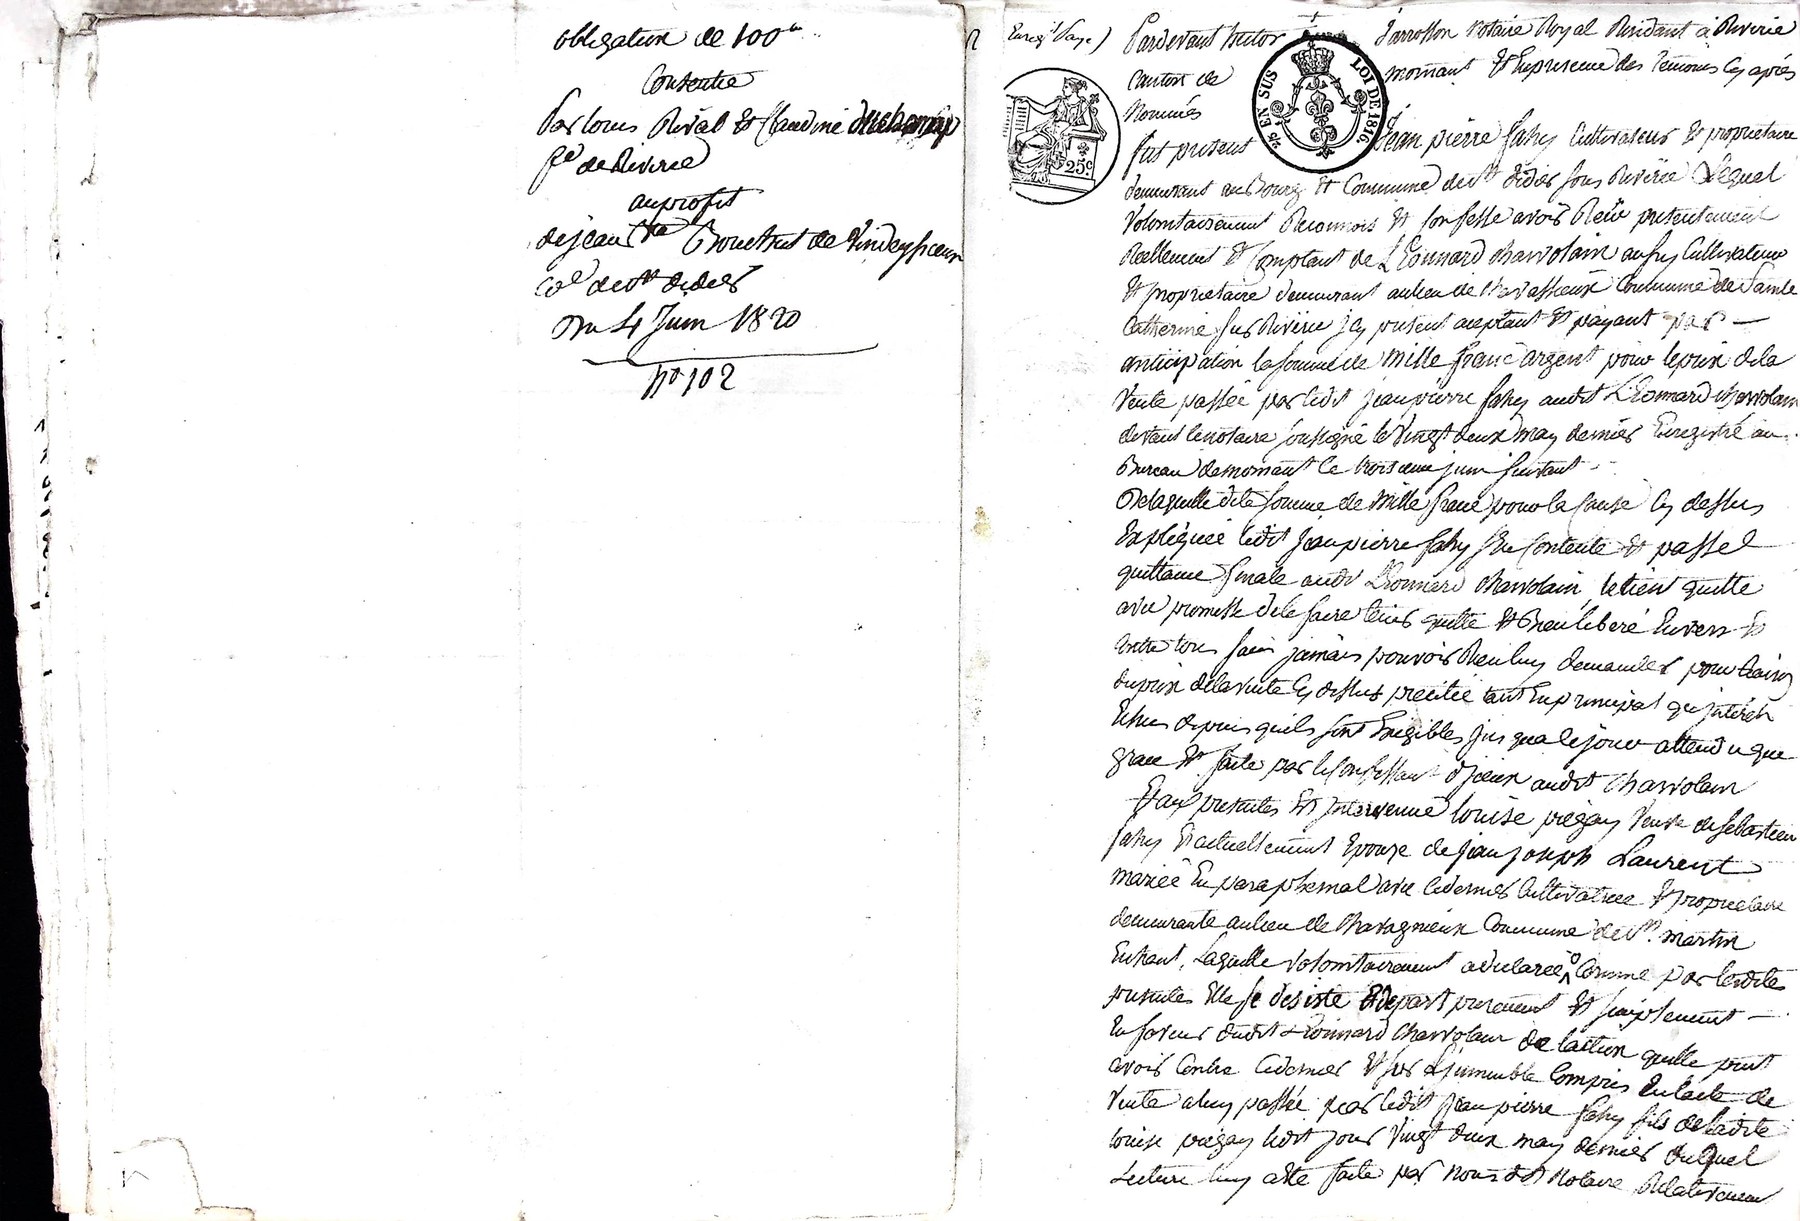 obligation de 100#
Consentie
Par louis Rival & Claudine
fe de Riverie
auprofit
de jean Bte de
Cne de st didier
Du 4 Juin 1820
no 102
Pardevant Ferrosson Notaire Royal Residant à Riverie
Canton de mornant & En presence des Temoins Cy après
Nommés
25 EN SUS
LOI DE 1816
25 c
fut présent Jean pierre fahy Cultivateur & propriétaire
demeurant au Bourg & Commune de st didier sous Riverie Lequel
Volontairement Reconnois & Confesse avoir Reçu presentement
Reellement & Comptant de Léonnard Charvolain aussy Cultivateur
& propriétaire demeurant aulieu de Commune de Sainte
Catherine sur Riverie Icy present aceptant & payant par —
anticipation la somme de Mille franc argent pour le prix dela
Vente passée par ledit jean pierre fahy audit Léonnard Charvolain
devant le notaire soussigné le Vingt deux may dernier Enregistré au
Bureau de mornant le troisieme juin suivant
De laquelle dite somme de Mille franc pour la Cause Cy dessus
Expliquée ledit jean pierre fahy s'En Contente & passe
quittance finale audit Léonnard Charvolain, le tient quitte
avec promesse dele faire tenir quitte & Bien libéré Envers &
Contre tous sans jamais pouvoir Rien luy demander pour Raison
du prix dela Vente Cy dessus précitée tant En principal qu'jntérêts
Echus depuis quils sont Exigibles jus qua le jour attendu que
grace & faite par le Confessant d'Jceux audit Charvolain
Et aux presentes Est Intervenue louise piégay Veuve de Sébastien
fahy & actuellement Epouze de jean joseph Laurent
mariée En paraphernal avec Cedernier Cultivatrice & propriétaire
demeurante aulieu de Commune de st. martin
Enhaut, Laquelle Volontairement a déclarée Comme par lesdites
presentes Elle se desiste & depart purement & simplement —
En faveur dudit Léonnard Charvolain de laction quelle peut
avoir Contre Cedernier & sur L'jmmeuble Compris Enlacte de
Vente aluy passée par ledit jean pierre fahy fils de ladite
louise piégay ledit jour Vingt deux may dernier duquel
Lecture luy a été faite par Nous dit Notaire Relativement